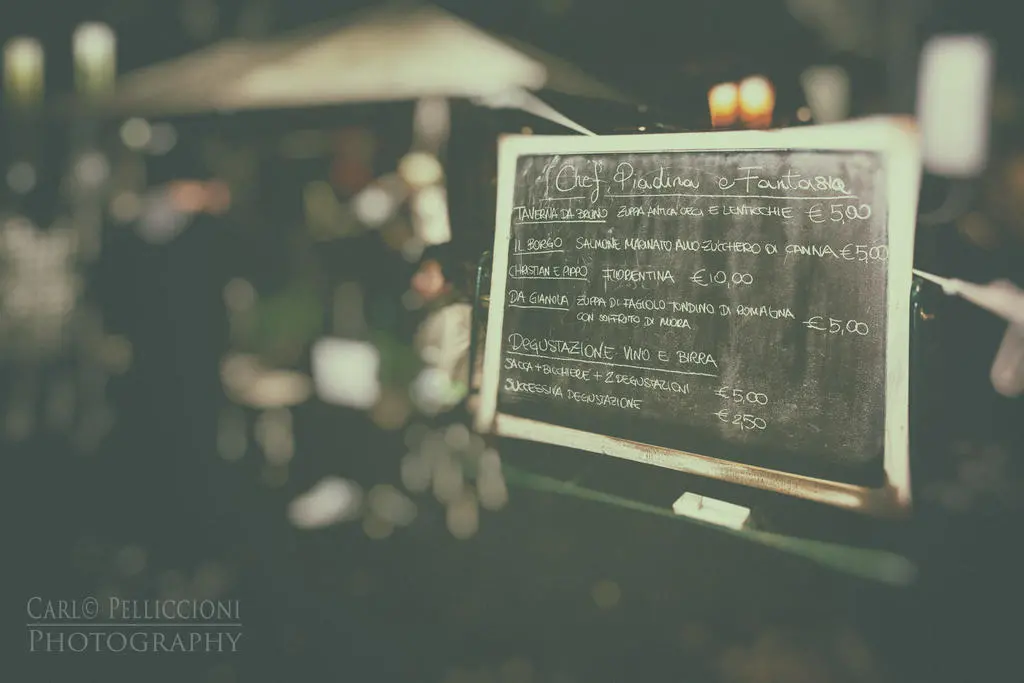 I Chef, Piadina e Fantasia
TAVERNA DA BRUNO ZUPPA ANTICA CECI E LENTICCHIE €5,00
IL BORGO SALMONE MARINATO ALLO ZUCCHERO DI CANNA €5,00
CHRISTIAN E PIPPO FIORENTINA €10,00
DA GIANOLA ZUPPA DI FAGIOLO TONDINO DI ROMAGNA
CON SOFFRITTO DI MORA €5,00
DEGUSTAZIONE VINO E BIRRA
SACCA + BICCHIERE + 2 DEGUSTAZIONI €5,00
SUCCESSIVA DEGUSTAZIONE €2,50
CARL© PELLICCIONI
PHOTOGRAPHY